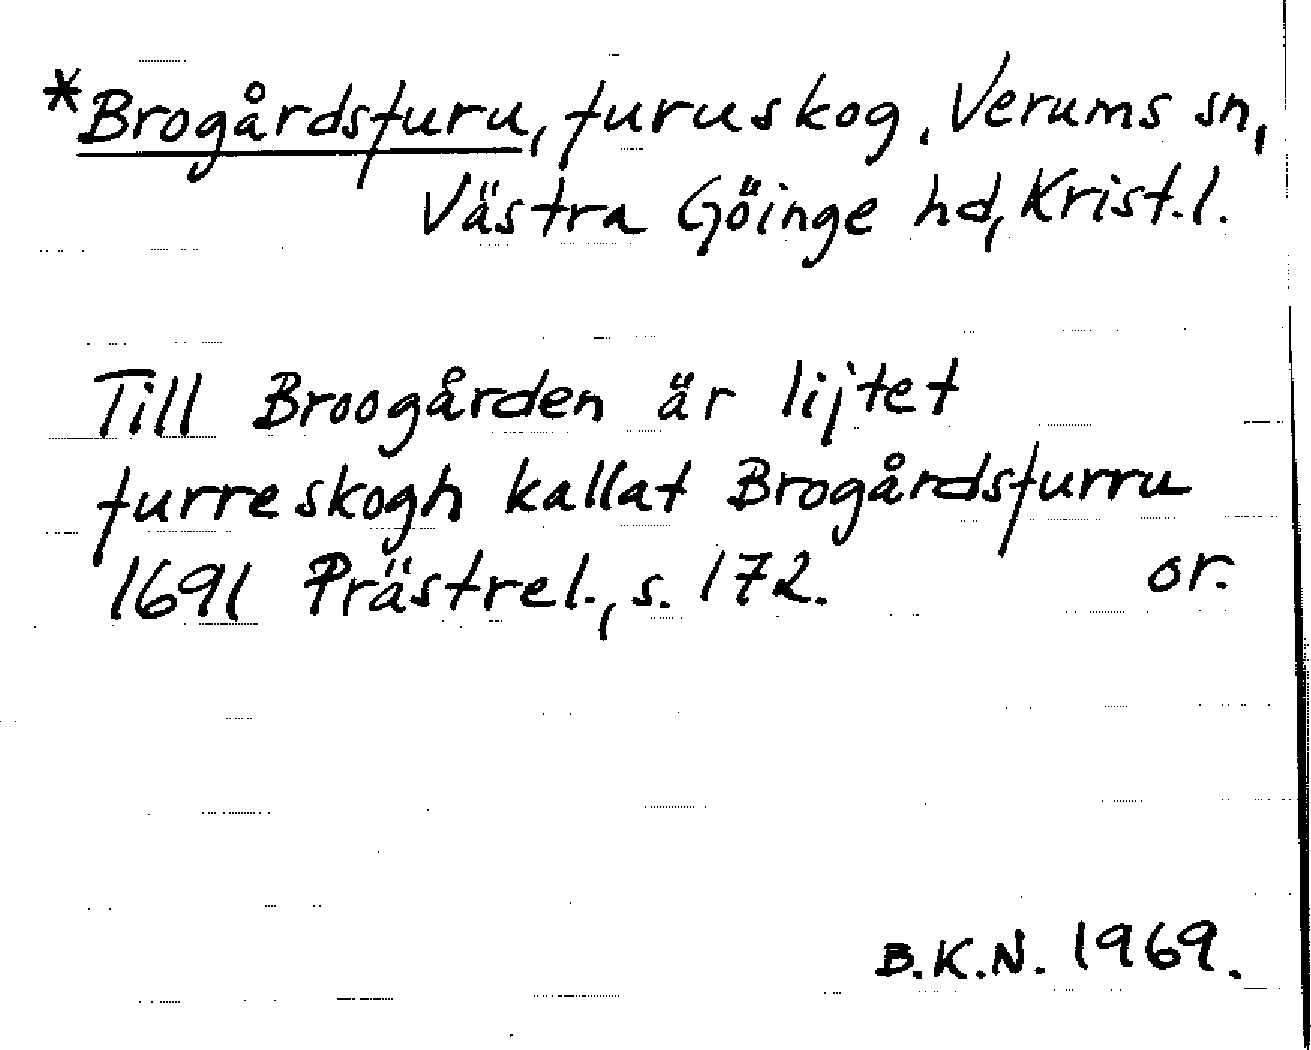 *Brogårdsfuru, furuskog, Verums sn,
Västra Göinge hd, Krist.l.
Till Broogården är lijtet
furreskogh kallat Brogårdsfurru
1691 Prästrel., s. 172. or.
B.K.N. 1969.